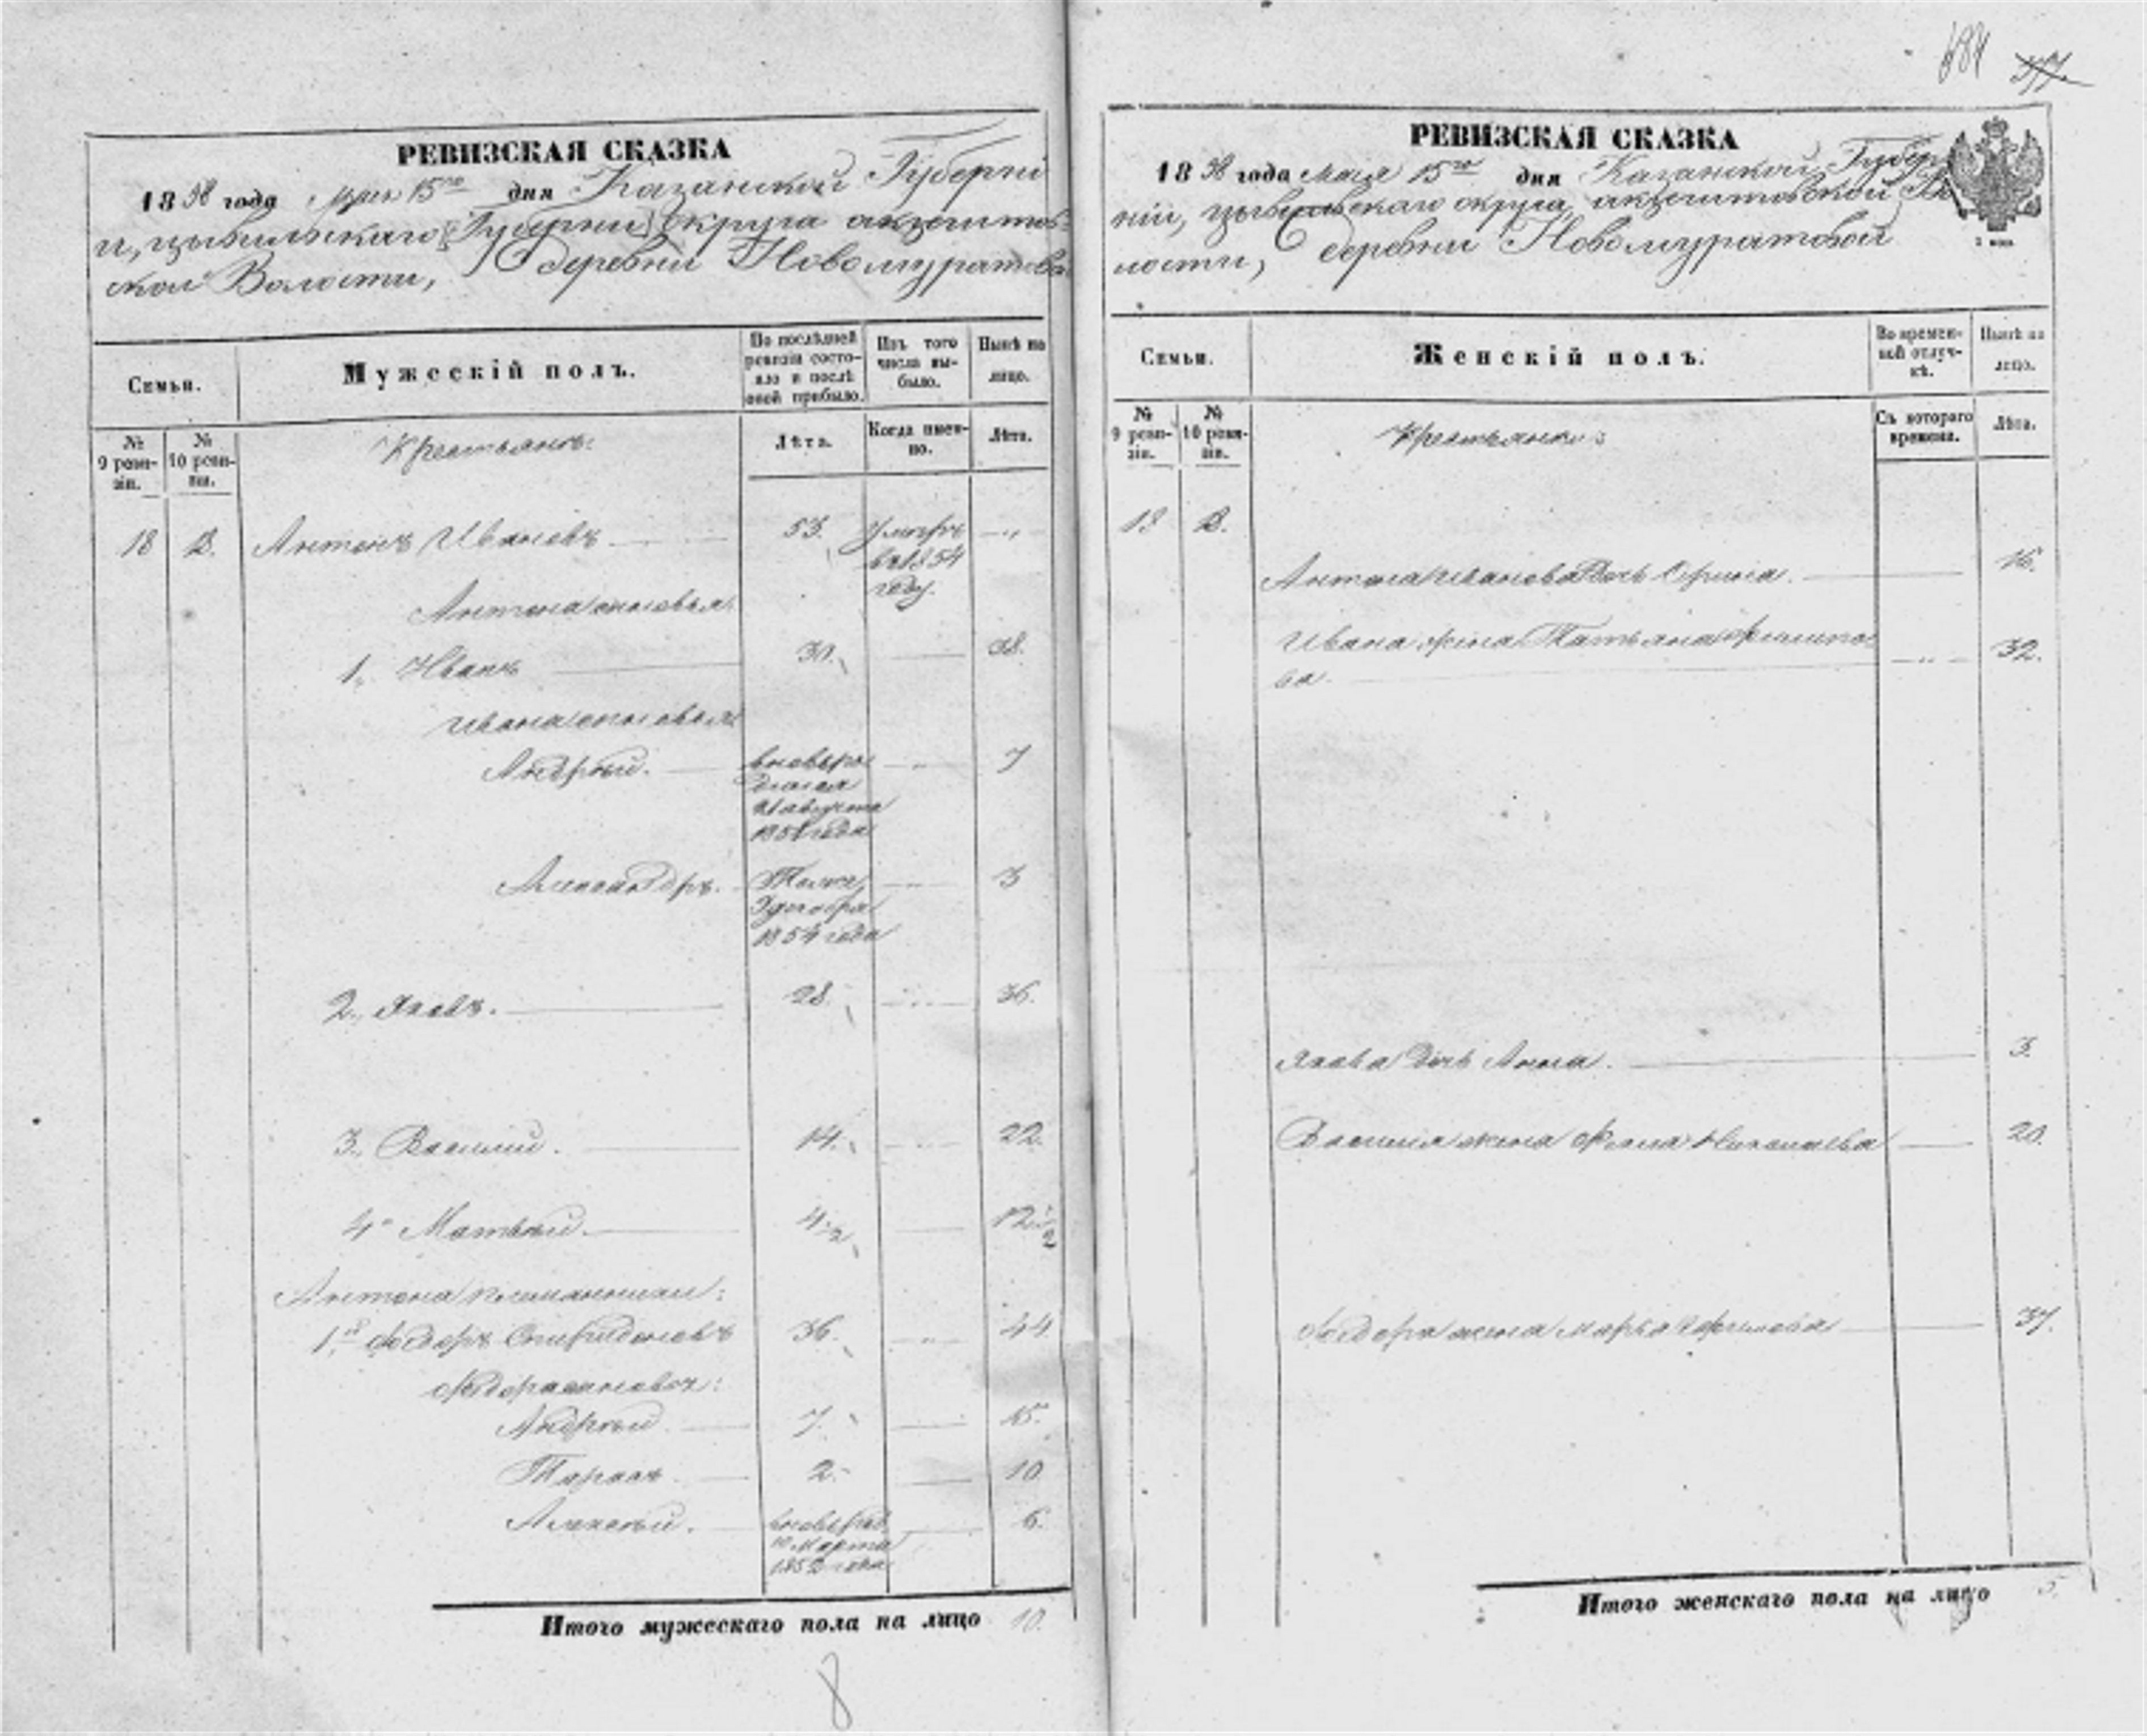 184 37.
РЕВИЗСКАЯ СКАЗКА
1858 года Маія 15го дня Казанской Губерні
и, цывильскаго Губерни округа акзегитов-
ской Волости, деревни Новомуратовой
Семьи.
Мужескій полъ.
По послѣдней ревизіи состояло и послѣ оной прибыло.
Изъ того числа выбыло.
Нынѣ на лицо.
№ 9 ревизіи.
№ 10 ревизіи.
Крестьянъ:
Лѣта.
Когда именно.
Лѣта.
18 Антонъ Ивановъ 53. Умеръ
въ 1854
году.
Антона сыновья
1. Иванъ 30. 38.
Ивана сыновья
Андрей. вновь ро 7
дился
августа
185 года
Александръ. Тоже 3
1854 года
2. Яковъ. 28. 36.
3. Василий. 14. 22.
4. Матвей. 4 1/2 12 1/2
Антона
1й Федоръ Спиридоновъ 36. 44
Федора сыновья:
Андрей 7. 15.
Тарасъ 2. 10
Алексей. вновь род. 6.
Марта
1852 года
Итого мужескаго пола на лицо 10.
8
РЕВИЗСКАЯ СКАЗКА
1858 года Маія 15го дня Казанской Губер
ніи, цывильскаго округа акзегитовской Во
лости, деревни Новомуратовой
Семьи.
Женскій полъ.
Во временной отлучкѣ.
Нынѣ на лицо.
№ 9 ревизіи.
№ 10 ревизіи.
Крестьянки:
Съ котораго времени.
Лѣта.
18
Антона Иванова дочь Орина. 16.
Ивана жена Татьяна Филипо 32.
ва.
Якова дочь Анна. 3.
Василия жена 20.
Федора жена Марья 37.
Итого женскаго пола на лицо 5.